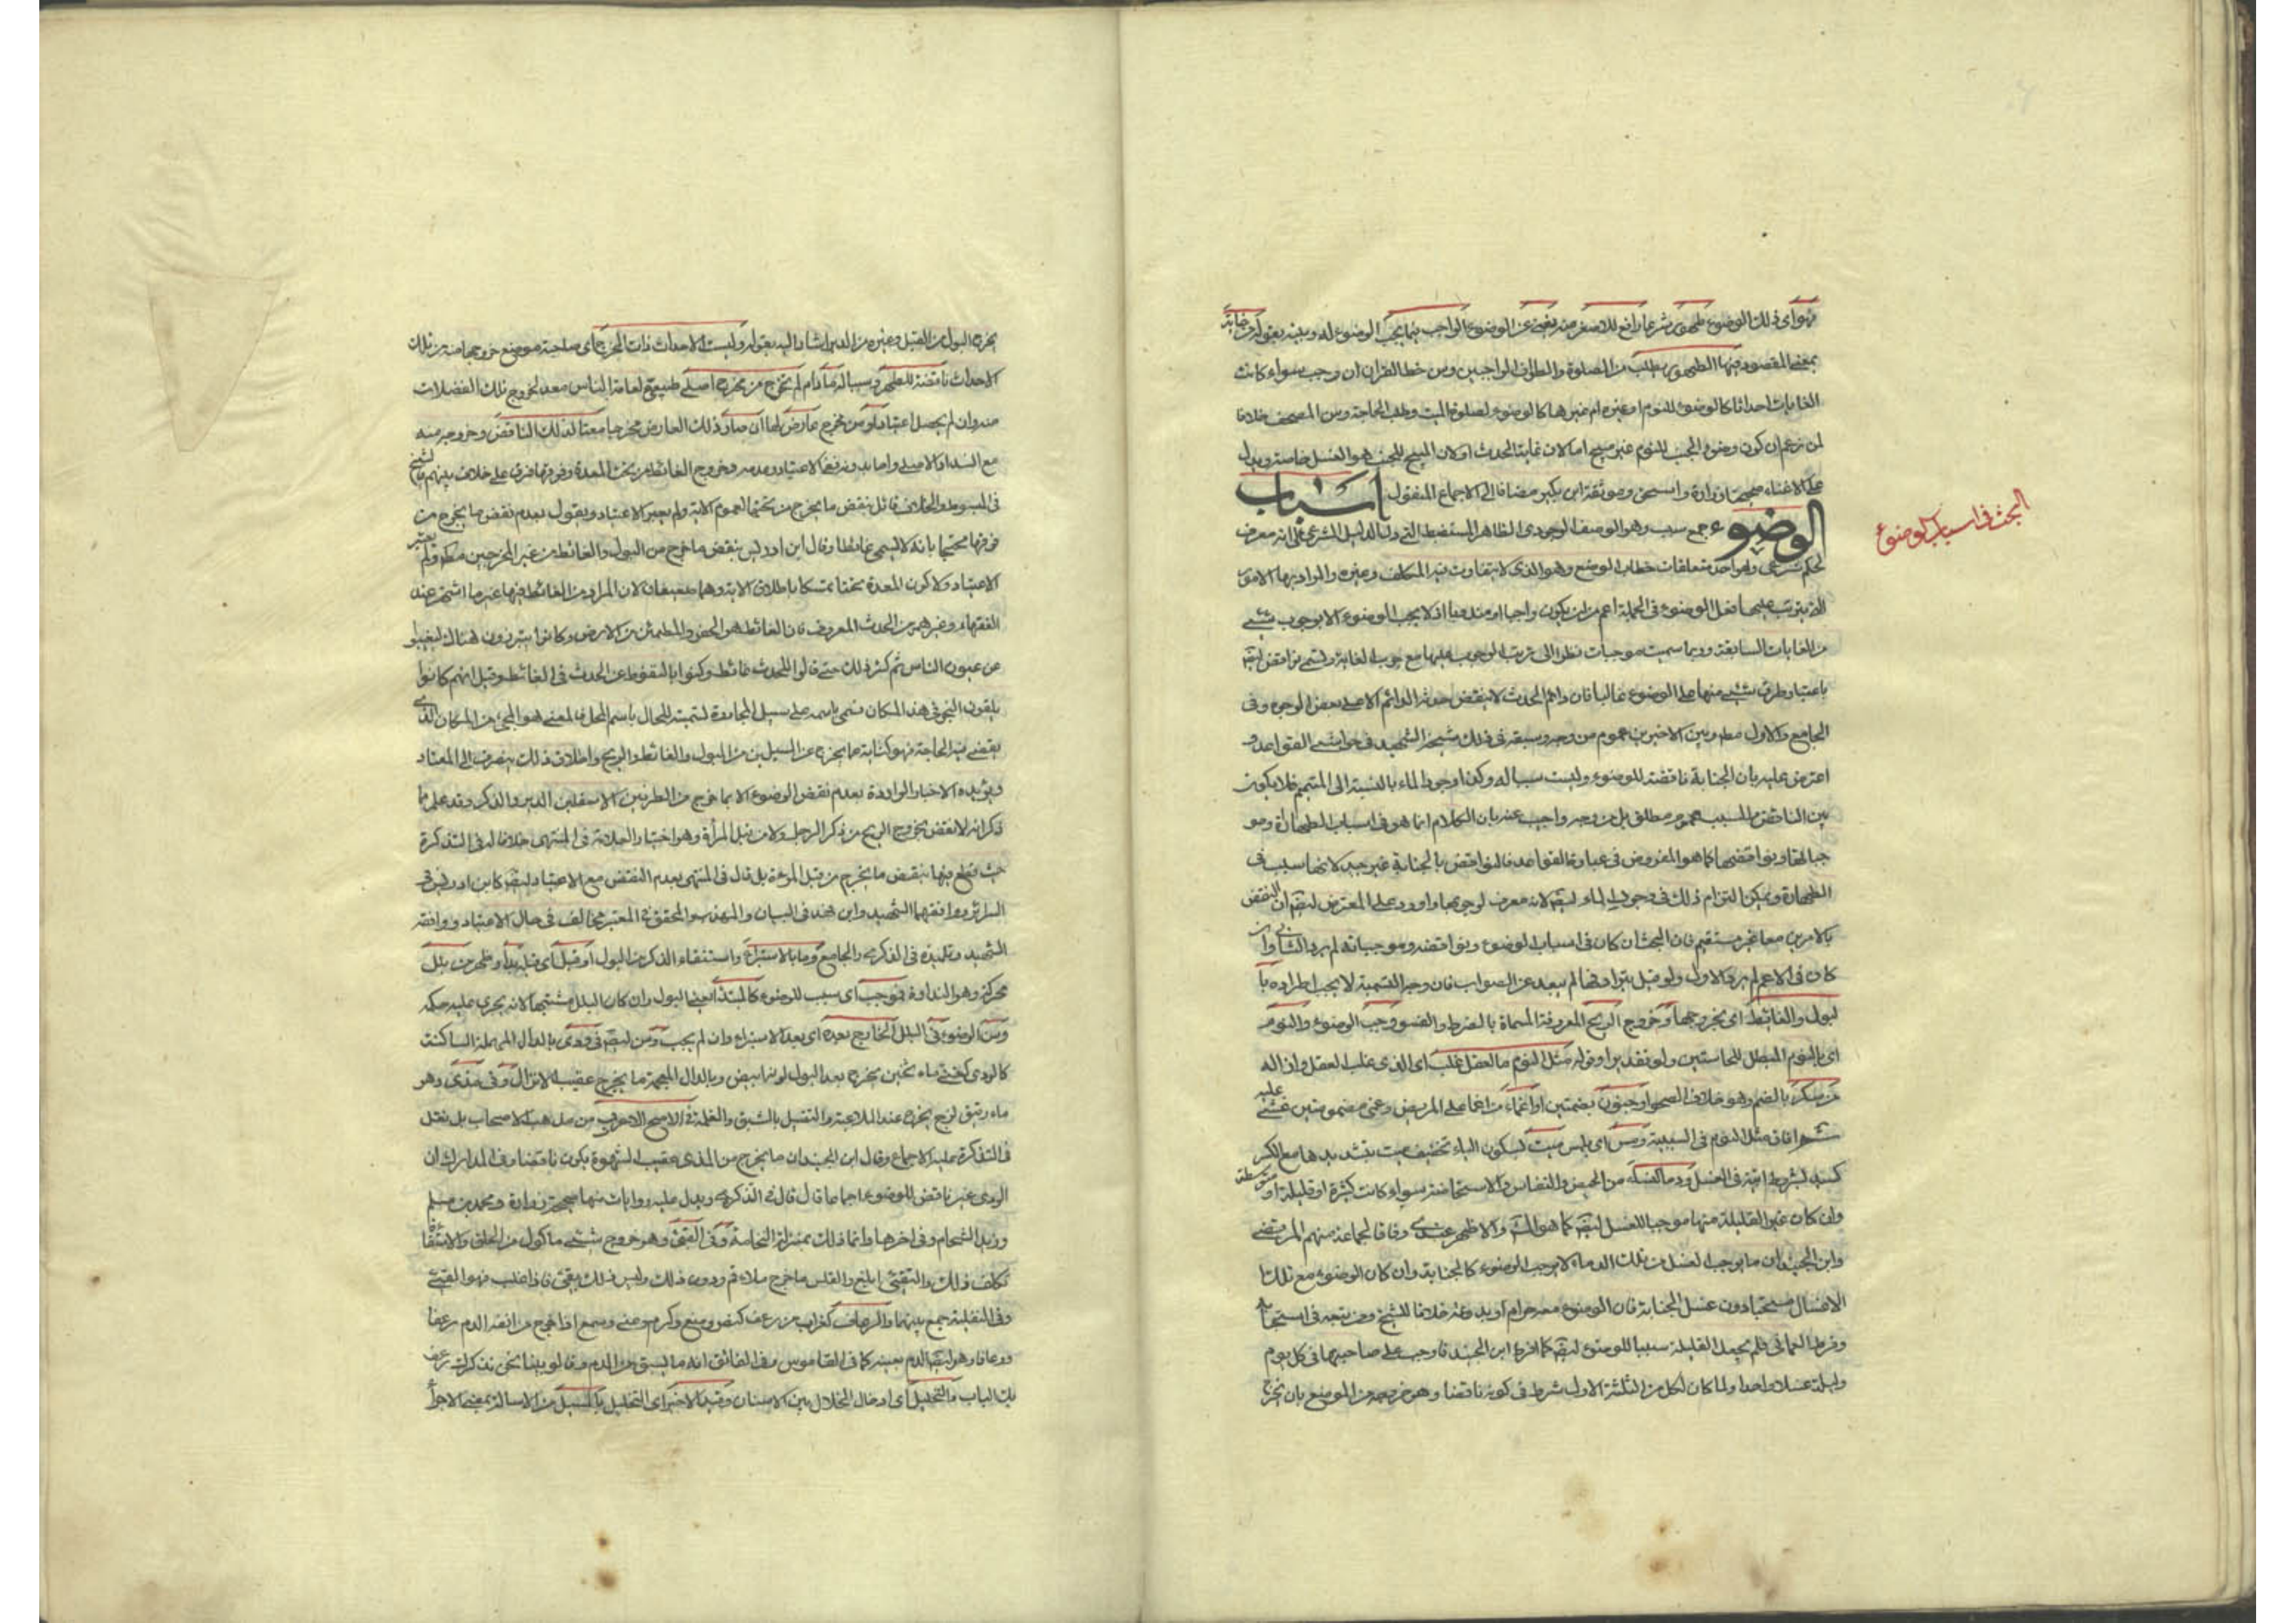 فهو اى ذلك الوضوء طهور شرعا رافع للاصغر منه يغنى عن الوضوء الواجب فيما يجب الوضوء له وبينه بقوله
بمعنى المقصود فيها الطهور يطلب من الصلوة والطواف الواجبين ومس خط القران ان وجب سواء كانت
الغايات احداثا كالوضوء للنوم او غيره ام غيرها كالوضوء لصلوة الميت وطلب الحاجة ومس المصحف خلافا
لمن زعم ان كون وضوء الجنب للنوم غير مبيح اما لان غايته الحدث او لان المبيح للجنب هو الغسل خاصة ويدل
على الاغناء صحيحتا زرارة واسحق وموثقة ابن بكير مضافا الى الاجماع المنقول اسباب
الوضوء جمع سبب وهو الوصف الوجودى الظاهر المنضبط الذى دل الدليل الشرعى على انه معرف
البحث فى اسباب الوضوء
لحكم شرعى وهو احد متعلقات خطاب الوضع وهو الذى لا يتفاوت فيه المكلف وغيره والمراد بها الامور
التى يترتب عليها فعل الوضوء فى الجملة اعم من ان يكون واجبا او مندوبا اذ لا يجب الوضوء الا بوجوب شئ
من الغايات السابقة وربما سميت موجبات نظرا الى ترتب الوجوب عليها مع وجوب الغاية وتسمى نواقض ايضا
باعتبار طرو شئ منها على الوضوء غالبا فان دائم الحدث لا ينقض حدثه الدائم الا على بعض الوجوه وفى
الجامع والاول مطلقا وبين الاخيرين عموم من وجه وسبقه فى ذلك شيخنا الشهيد فى حواشى القواعد و
اعترض عليه بان الجنابة ناقضة للوضوء وليست سببا له وكذا وجود الماء بالنسبة الى المتيمم فلا يكون
بين الناقض والسبب عموم مطلق بل من وجه واجيب عنه بان الكلام انما هو فى اسباب الطهارة ومو
جباتها ونواقضها كما هو المفروض فى عبارة القواعد فالنواقض بالجنابة غير جيد لانها سبب فى
الطهارة ويمكن التزام ذلك فى وجود الماء ايضا لانه معرف لوجوبها واورد على المعترض ايضا ان النقض
بالامرين معا غير مستقيم فان البحث ان كان فى اسباب الوضوء ونواقضه وموجباته لم يرد الثانى وان
كان فى الاعم لم يرد الاول ولو قيل بترادفها لم يبعد عن الصواب فان وجه التسمية لا يجب اطراده با
لبول والغائط اى بخروجهما وخروج الريح المعروفة المسماة بالضرط والفسو وجب الوضوء والنوم
اى بالنوم المبطل للحاستين ولو تقديرا وقوله مثل النوم ما العقل غلب اى الذى غلب العقل وازاله
من سكر بالضم وهو خلاف الصحو او جنون بضمتين او اغماء من اغما على المريض وغمى مضمومتين غشى عليه
ثم افاق مثل النوم فى السببية ومس اى لمس ميت بسكون الياء تخفيف ميت بتشديدها مع الكسر
كسيد بشروط اتية فى الغسل ودماء النساء من الحيض والنفاس والاستحاضة سواء كانت كثيرة او قليلة او متوسطة
وان كان غير القليلة منها موجبا للغسل ايضا كما هو المشهور والاظهر عندى وفاقا لجماعة منهم المرتضى
وابن الجنيد ان ما يوجب الغسل من تلك الدماء لا يوجب الوضوء كالجنابة وان كان الوضوء مع تلك
الاغسال مستحبا دون غسل الجنابة فان الوضوء معه حرام او بدعة خلافا للشيخ ومن تبعه فى استحبابه
وفرط العمانى فلم يجعل القليلة سببا للوضوء ايضا كما افرط ابن الجنيد فاوجب على صاحبتها فى كل يوم
وليلة غسلا واحدا ولما كان لكل من الثلثة الاول شرط فى كونه ناقضا وهو خروجه من الموضع بان يخرج
يخرج البول من القبل وغيره من الدبر اشار اليه بقوله وليست الاحداث ذات المخرج اى صاحبة موضع خروجها منه من تلك
الاحداث ناقضة للطهر وسببا له ما دام لم تخرج من مخرج اصلى طبيعى لعامة الناس معد لخروج تلك الفضلات
منه وان لم يحصل اعتياد او من مخرج عارض لها ان صار ذلك العارض مخرجا معتادا لذلك الناقض وخروجه منه
مع انسداد الاصلى واما بدونه فمع الاعتياد وعدمه وخروج الغائط من تحت المعدة وفوقها فرق على خلاف بينهم فالشيخ
فى المبسوط والخلاف قائل بنقض ما يخرج من تحتها لعموم الاية ولم يعتبر الاعتياد ويقول بعدم نقض ما يخرج من
فوقها محتجا بانه لا يسمى غائطا وقال ابن ادريس بنقض ما خرج من البول والغائط من غير المخرجين مطلقا ولم يعتبر
الاعتياد ولا كون المعدة تحتا تمسكا باطلاق الاية وهما ضعيفان لان المراد من الغائط فيها غير ما اشتهر عند
الفقهاء وغيرهم من الحدث المعروف فان الغائط هو الخفض والمطمئن من الارض وكانوا يتبرزون هناك ليغيبوا
عن عيون الناس ثم كثر ذلك حتى قالوا للحدث غائط وكنوا بالتغوط عن الحدث فى الغائط وقيل انهم كانوا
يلقون النجو فى هذا المكان فسمى باسمه على سبيل المجاورة لتسمية الحال باسم المحل فالمعنى هو المجئ من المكان الذى
يقضى فيه الحاجة فهو كناية عما يخرج عن السبيلين من البول والغائط والريح واطلاق ذلك ينصرف الى المعتاد
ويؤيده الاخبار الواردة بعدم نقض الوضوء الا بما خرج من الطرفين الاسفلين الدبر والذكر وقد علم مما
ذكر انه لا نقض بخروج الريح من ذكر الرجل ولا من قبل المرأة وهو اختيار العلامة فى المنتهى خلافا له فى التذكرة
حيث قطع فيها بنقض ما يخرج من قبل المرءة بل قال فى المنتهى بعدم النقض مع الاعتياد ايضا كابن ادريس فى
السرائر ووافقهما الشهيد وابن فهد فى البيان والمهذب والمحقق فى المعتبر مخالف فى حال الاعتياد ووافقه
الشهيد وتلميذه فى الذكرى والجامع وما بالاستبراء واستنقاء الذكر من البول او قبل اى قبله بدا وظهر من بلل
محركة وهو النداوة فموجب اى سبب للوضوء كالمبتدأ يعنى البول وان كان البلل مشتبها لانه يجرى عليه حكمه
وسن الوضوء فى البلل الخارج بعده اى بعد الاستبراء وان لم يجب وسن ايضا فى ودى بالدال المهملة الساكنة
كالودى كغنى ماء ثخين يخرج بعد البول لونه ابيض وبالذال المعجمة ما يخرج عقيب الانزال وفى مذى وهو
ماء رقيق لزج يخرج عند الملاعبة والتقبيل بالشبق والغلمة فى الاصح الاعرف من مذهب الاصحاب بل نقل
فى التذكرة عليه الاجماع وقال ابن الجنيد ان ما يخرج من المذى عقيب الشهوة يكون ناقضا وفى المدارك ان
الودى غير ناقض للوضوء اجماعا قال قال فى الذكرى ويدل عليه روايات منها صحيحة زرارة ومحمد بن مسلم
وزيد الشحام وفى اخرها وانما ذلك بمنزلة النخامة وفى القئ وهو خروج شئ ماكول من الحلق والاستقاء
تكلف ذلك والتقيئ ابلغ والقلس ما خرج ملاء فم ودون ذلك وليس ذلك بقئ فاذا غلب فهو القئ
وفى النقلية جمع بينها والرعاف كغراب من رعف كنصر ومنع وكرم وعنى وسمع اذا خرج من انفه الدم رعفا
ورعافا وهو ايضا الدم بعينه كما فى القاموس وفى الفائق انه ما يسبق من الدم وقالوا بينا نحن نذكرك رعف
بك الباب والتخليل اى ادخال الخلال بين الاسنان وقيد الاخير اى التخليل بالمسيل من الاسالة بمعنى الاجرا